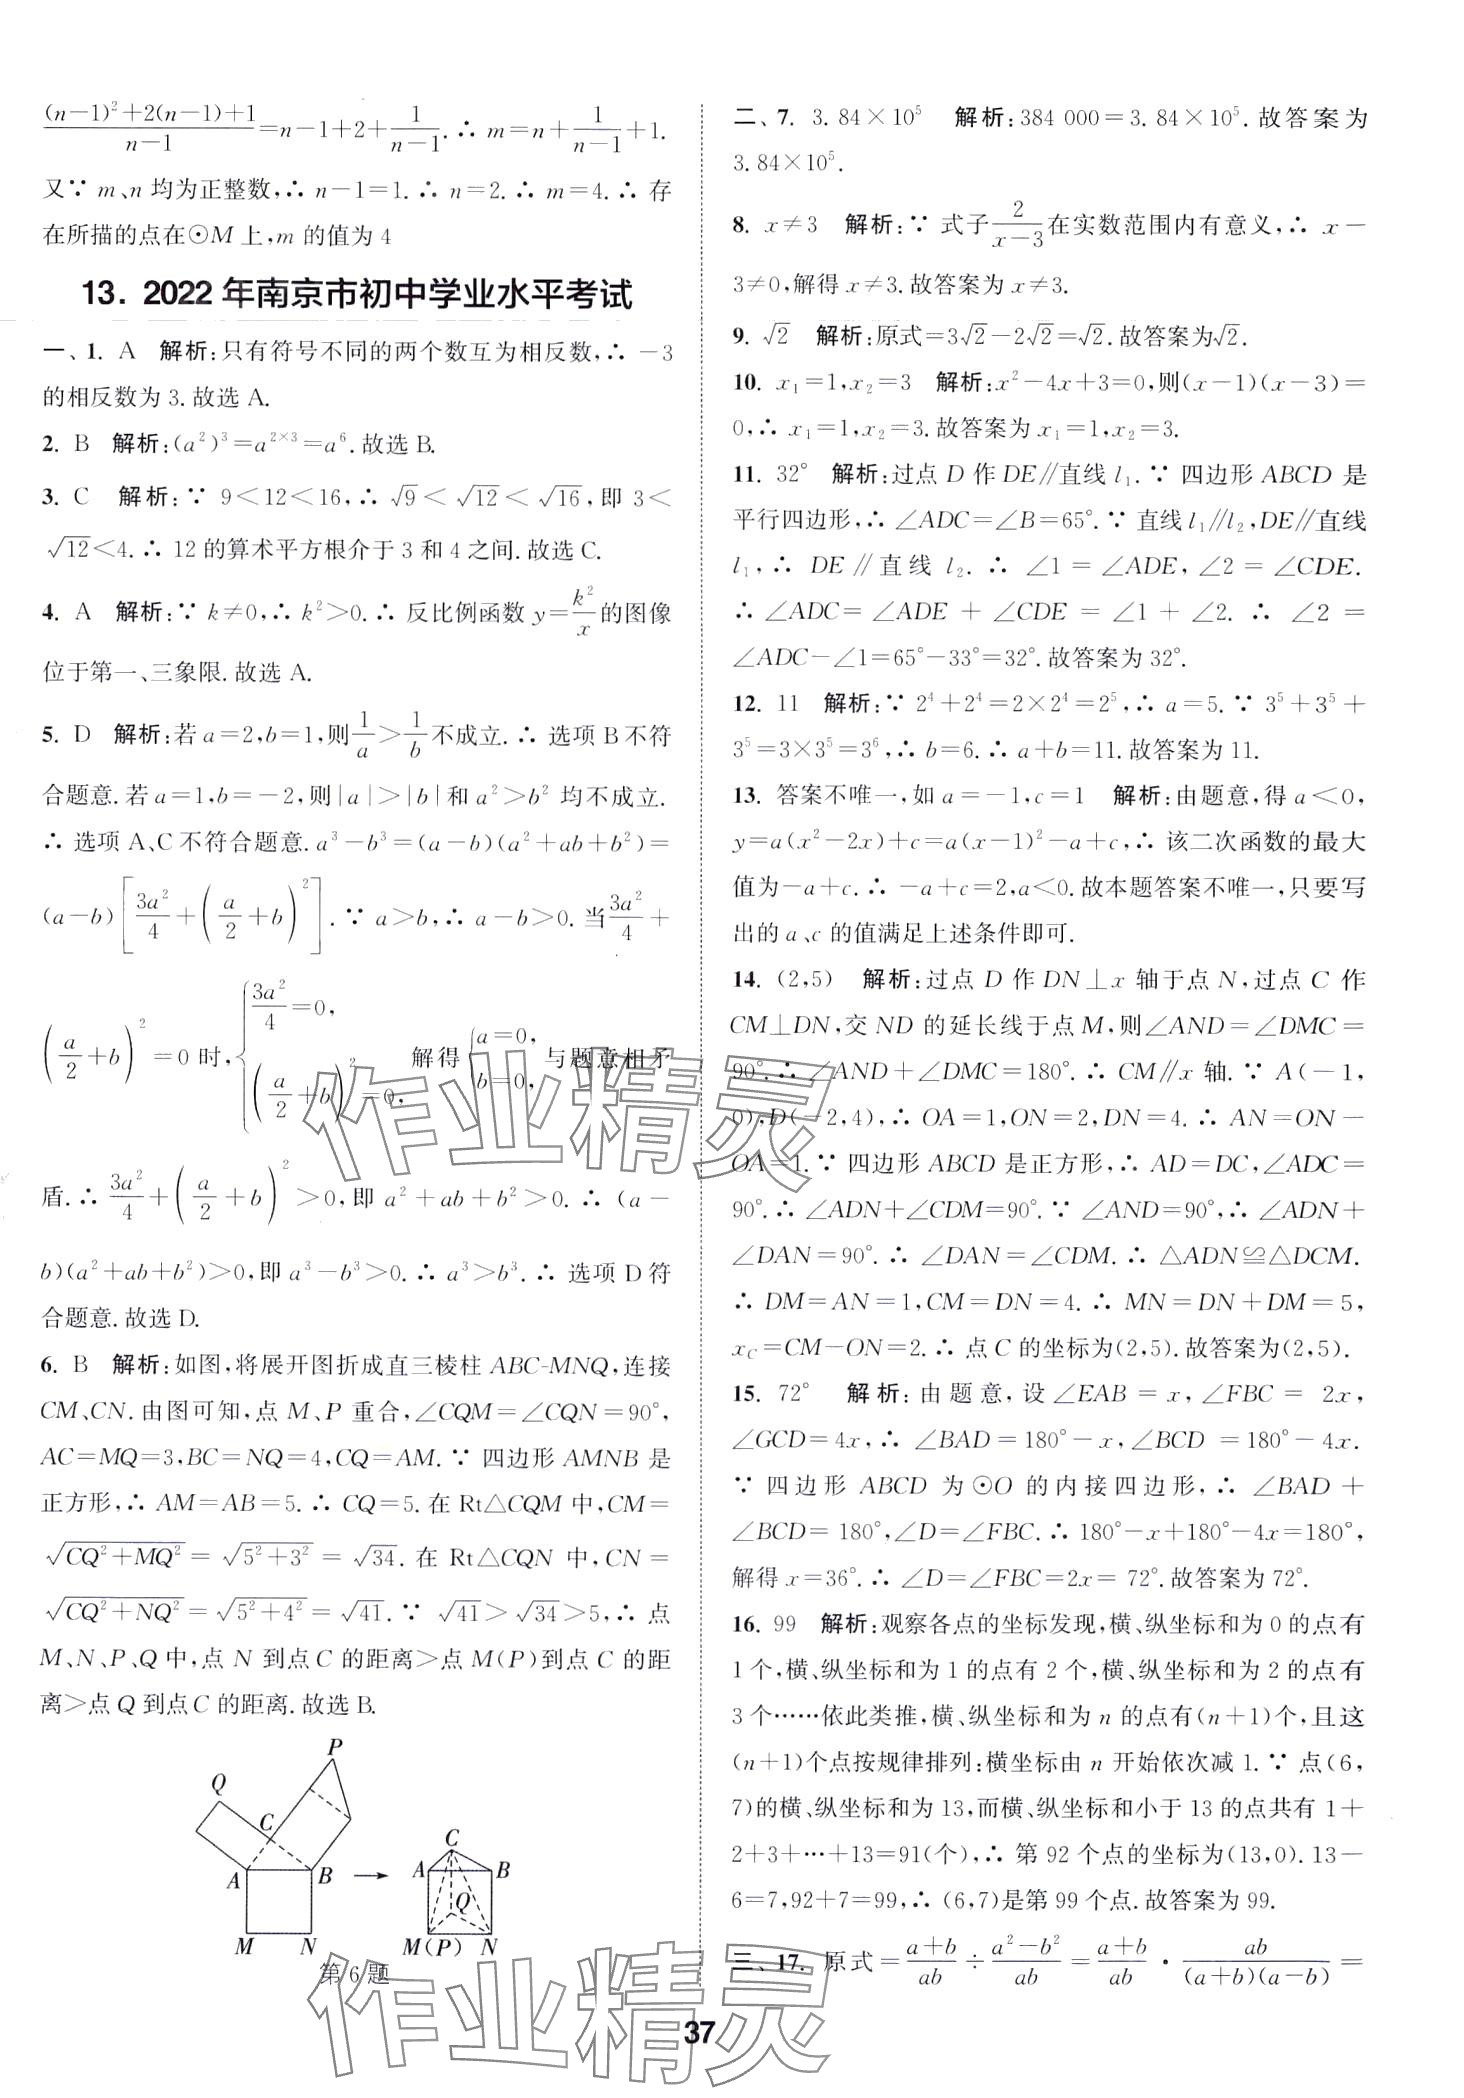 \frac{(n-1)^2+2(n-1)+1}{n-1}=n-1+2+\frac{1}{n-1}.∴ m=n+\frac{1}{n-1}+1.
又∵ m、n 均为正整数,∴ n-1=1.∴ n=2.∴ m=4.∴ 存
在所描的点在⊙M 上,m 的值为 4
13. 2022 年南京市初中学业水平考试
一、1. A 解析:只有符号不同的两个数互为相反数,∴ -3
的相反数为 3.故选 A.
2. B 解析:(a^2)^3=a^{2×3}=a^6.故选 B.
3. C 解析:∵ 9<12<16,∴ √9<√12<√16,即 3<
√12<4.∴ 12 的算术平方根介于 3 和 4 之间.故选 C.
4. A 解析:∵ k≠0,∴ k^2>0.∴ 反比例函数 y=\frac{k^2}{x}的图像
位于第一、三象限.故选 A.
5. D 解析:若 a=2,b=1,则\frac{1}{a}>\frac{1}{b}不成立.∴ 选项 B 不符
合题意.若 a=1,b=-2,则|a|>|b|和 a^2>b^2 均不成立.
∴ 选项 A、C 不符合题意.a^3-b^3=(a-b)(a^2+ab+b^2)=
(a-b)[\frac{3a^2}{4}+(\frac{a}{2}+b)^2].∵ a>b,∴ a-b>0.当\frac{3a^2}{4}+
(\frac{a}{2}+b)^2=0 时,{\frac{3a^2}{4}=0, (\frac{a}{2}+b)^2=0, 解得{a=0, b=0, 与题意相矛
盾.∴ \frac{3a^2}{4}+(\frac{a}{2}+b)^2>0,即 a^2+ab+b^2>0.∴ (a-
b)(a^2+ab+b^2)>0,即 a^3-b^3>0.∴ a^3>b^3.∴ 选项 D 符
合题意.故选 D.
6. B 解析:如图,将展开图折成直三棱柱 ABC-MNQ,连接
CM、CN.由图可知,点 M、P 重合,∠CQM=∠CQN=90°,
AC=MQ=3,BC=NQ=4,CQ=AM.∵ 四边形 AMNB 是
正方形,∴ AM=AB=5.∴ CQ=5.在 Rt△CQM 中,CM=
√(CQ^2+MQ^2)=√(5^2+3^2)=√34.在 Rt△CQN 中,CN=
√(CQ^2+NQ^2)=√(5^2+4^2)=√41.∵ √41>√34>5,∴ 点
M、N、P、Q 中,点 N 到点 C 的距离>点 M(P)到点 C 的距
离>点 Q 到点 C 的距离.故选 B.
P
Q
C
A
B
M
N
C
A
B
Q
M(P)
N
第 6 题
二、7. 3.84×10^5 解析:384 000=3.84×10^5.故答案为
3.84×10^5.
8. x≠3 解析:∵ 式子\frac{2}{x-3}在实数范围内有意义,∴ x-
3≠0,解得 x≠3.故答案为 x≠3.
9. √2 解析:原式=3√2-2√2=√2.故答案为√2.
10. x_1=1,x_2=3 解析:x^2-4x+3=0,则(x-1)(x-3)=
0,∴ x_1=1,x_2=3.故答案为 x_1=1,x_2=3.
11. 32° 解析:过点 D 作 DE∥直线 l_1.∵ 四边形 ABCD 是
平行四边形,∴ ∠ADC=∠B=65°.∵ 直线 l_1∥l_2,DE∥直线
l_1,∴ DE∥直线 l_2.∴ ∠1=∠ADE,∠2=∠CDE.
∴ ∠ADC=∠ADE+∠CDE=∠1+∠2.∴ ∠2=
∠ADC-∠1=65°-33°=32°.故答案为 32°.
12. 11 解析:∵ 2^4+2^4=2×2^4=2^5,∴ a=5.∵ 3^5+3^5+
3^5=3×3^5=3^6,∴ b=6.∴ a+b=11.故答案为 11.
13. 答案不唯一,如 a=-1,c=1 解析:由题意,得 a<0,
y=a(x^2-2x)+c=a(x-1)^2-a+c,∴ 该二次函数的最大
值为-a+c.∴ -a+c=2,a<0.故本题答案不唯一,只要写
出的 a、c 的值满足上述条件即可.
14. (2,5) 解析:过点 D 作 DN⊥x 轴于点 N,过点 C 作
CM⊥DN,交 ND 的延长线于点 M,则∠AND=∠DMC=
90°.∴ ∠AND+∠DMC=180°.∴ CM∥x 轴.∵ A(-1,
0),D(-2,4),∴ OA=1,ON=2,DN=4.∴ AN=ON-
OA=1.∵ 四边形 ABCD 是正方形,∴ AD=DC,∠ADC=
90°.∴ ∠ADN+∠CDM=90°.∵ ∠AND=90°,∴ ∠ADN+
∠DAN=90°.∴ ∠DAN=∠CDM.∴ △ADN≌△DCM.
∴ DM=AN=1,CM=DN=4.∴ MN=DN+DM=5,
x_C=CM-ON=2.∴ 点 C 的坐标为(2,5).故答案为(2,5).
15. 72° 解析:由题意,设∠EAB=x,∠FBC=2x,
∠GCD=4x,∴ ∠BAD=180°-x,∠BCD=180°-4x.
∵ 四边形 ABCD 为⊙O 的内接四边形,∴ ∠BAD+
∠BCD=180°,∠D=∠FBC.∴ 180°-x+180°-4x=180°,
解得 x=36°.∴ ∠D=∠FBC=2x=72°.故答案为 72°.
16. 99 解析:观察各点的坐标发现,横、纵坐标和为 0 的点有
1 个,横、纵坐标和为 1 的点有 2 个,横、纵坐标和为 2 的点有
3 个……依此类推,横、纵坐标和为 n 的点有(n+1)个,且这
(n+1)个点按规律排列:横坐标由 n 开始依次减 1.∵ 点(6,
7)的横、纵坐标和为 13,而横、纵坐标和小于 13 的点共有 1+
2+3+…+13=91(个),∴ 第 92 个点的坐标为(13,0).13-
6=7,92+7=99,∴ (6,7)是第 99 个点.故答案为 99.
三、17. 原式=\frac{a+b}{ab}÷\frac{a^2-b^2}{ab}=\frac{a+b}{ab}·\frac{ab}{(a+b)(a-b)}=
37
作业精灵
作业精灵